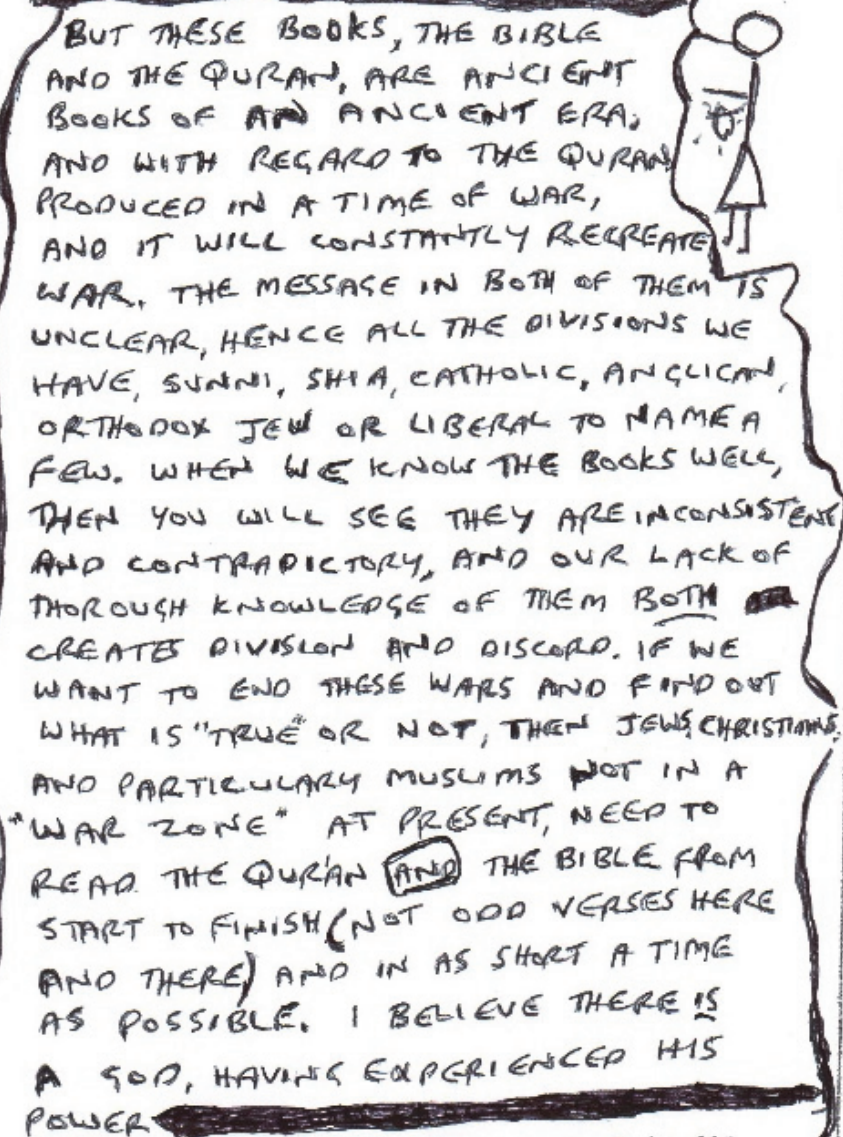 BUT THESE BOOKS, THE BIBLE
AND THE QURAN, ARE ANCIENT
BOOKS OF AN ANCIENT ERA,
AND WITH REGARD TO THE QURAN
PRODUCED IN A TIME OF WAR,
AND IT WILL CONSTANTLY RECREATE
WAR. THE MESSAGE IN BOTH OF THEM IS
UNCLEAR, HENCE ALL THE DIVISIONS WE
HAVE, SUNNI, SHIA, CATHOLIC, ANGLICAN,
ORTHODOX JEW OR LIBERAL TO NAME A
FEW. WHEN WE KNOW THE BOOKS WELL,
THEN YOU WILL SEE THEY ARE INCONSISTENT
AND CONTRADICTORY, AND OUR LACK OF
THOROUGH KNOWLEDGE OF THEM BOTH
CREATES DIVISION AND DISCORD. IF WE
WANT TO END THESE WARS AND FIND OUT
WHAT IS "TRUE" OR NOT, THEN JEWS, CHRISTIANS,
AND PARTICULARY MUSLIMS NOT IN A
"WAR ZONE" AT PRESENT, NEED TO
READ THE QUR'AN AND THE BIBLE FROM
START TO FINISH (NOT ODD VERSES HERE
AND THERE) AND IN AS SHORT A TIME
AS POSSIBLE. I BELIEVE THERE IS
A GOD, HAVING EXPERIENCED HIS
POWER